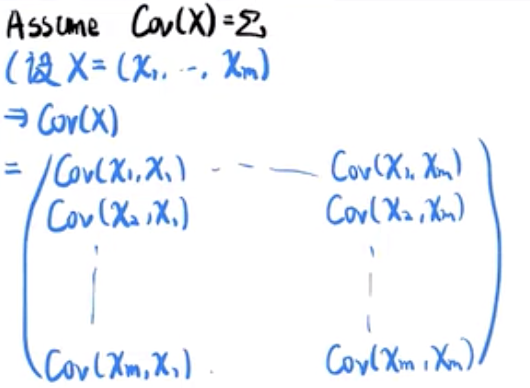 Assume Cov(X)=Σ
(设 X=(X₁, ..., Xₘ)
⇒ Cov(X)
= (Cov(X₁,X₁) --- Cov(X₁,Xₘ)
Cov(X₂,X₁) Cov(X₂,Xₘ)
Cov(Xₘ,X₁) Cov(Xₘ,Xₘ))